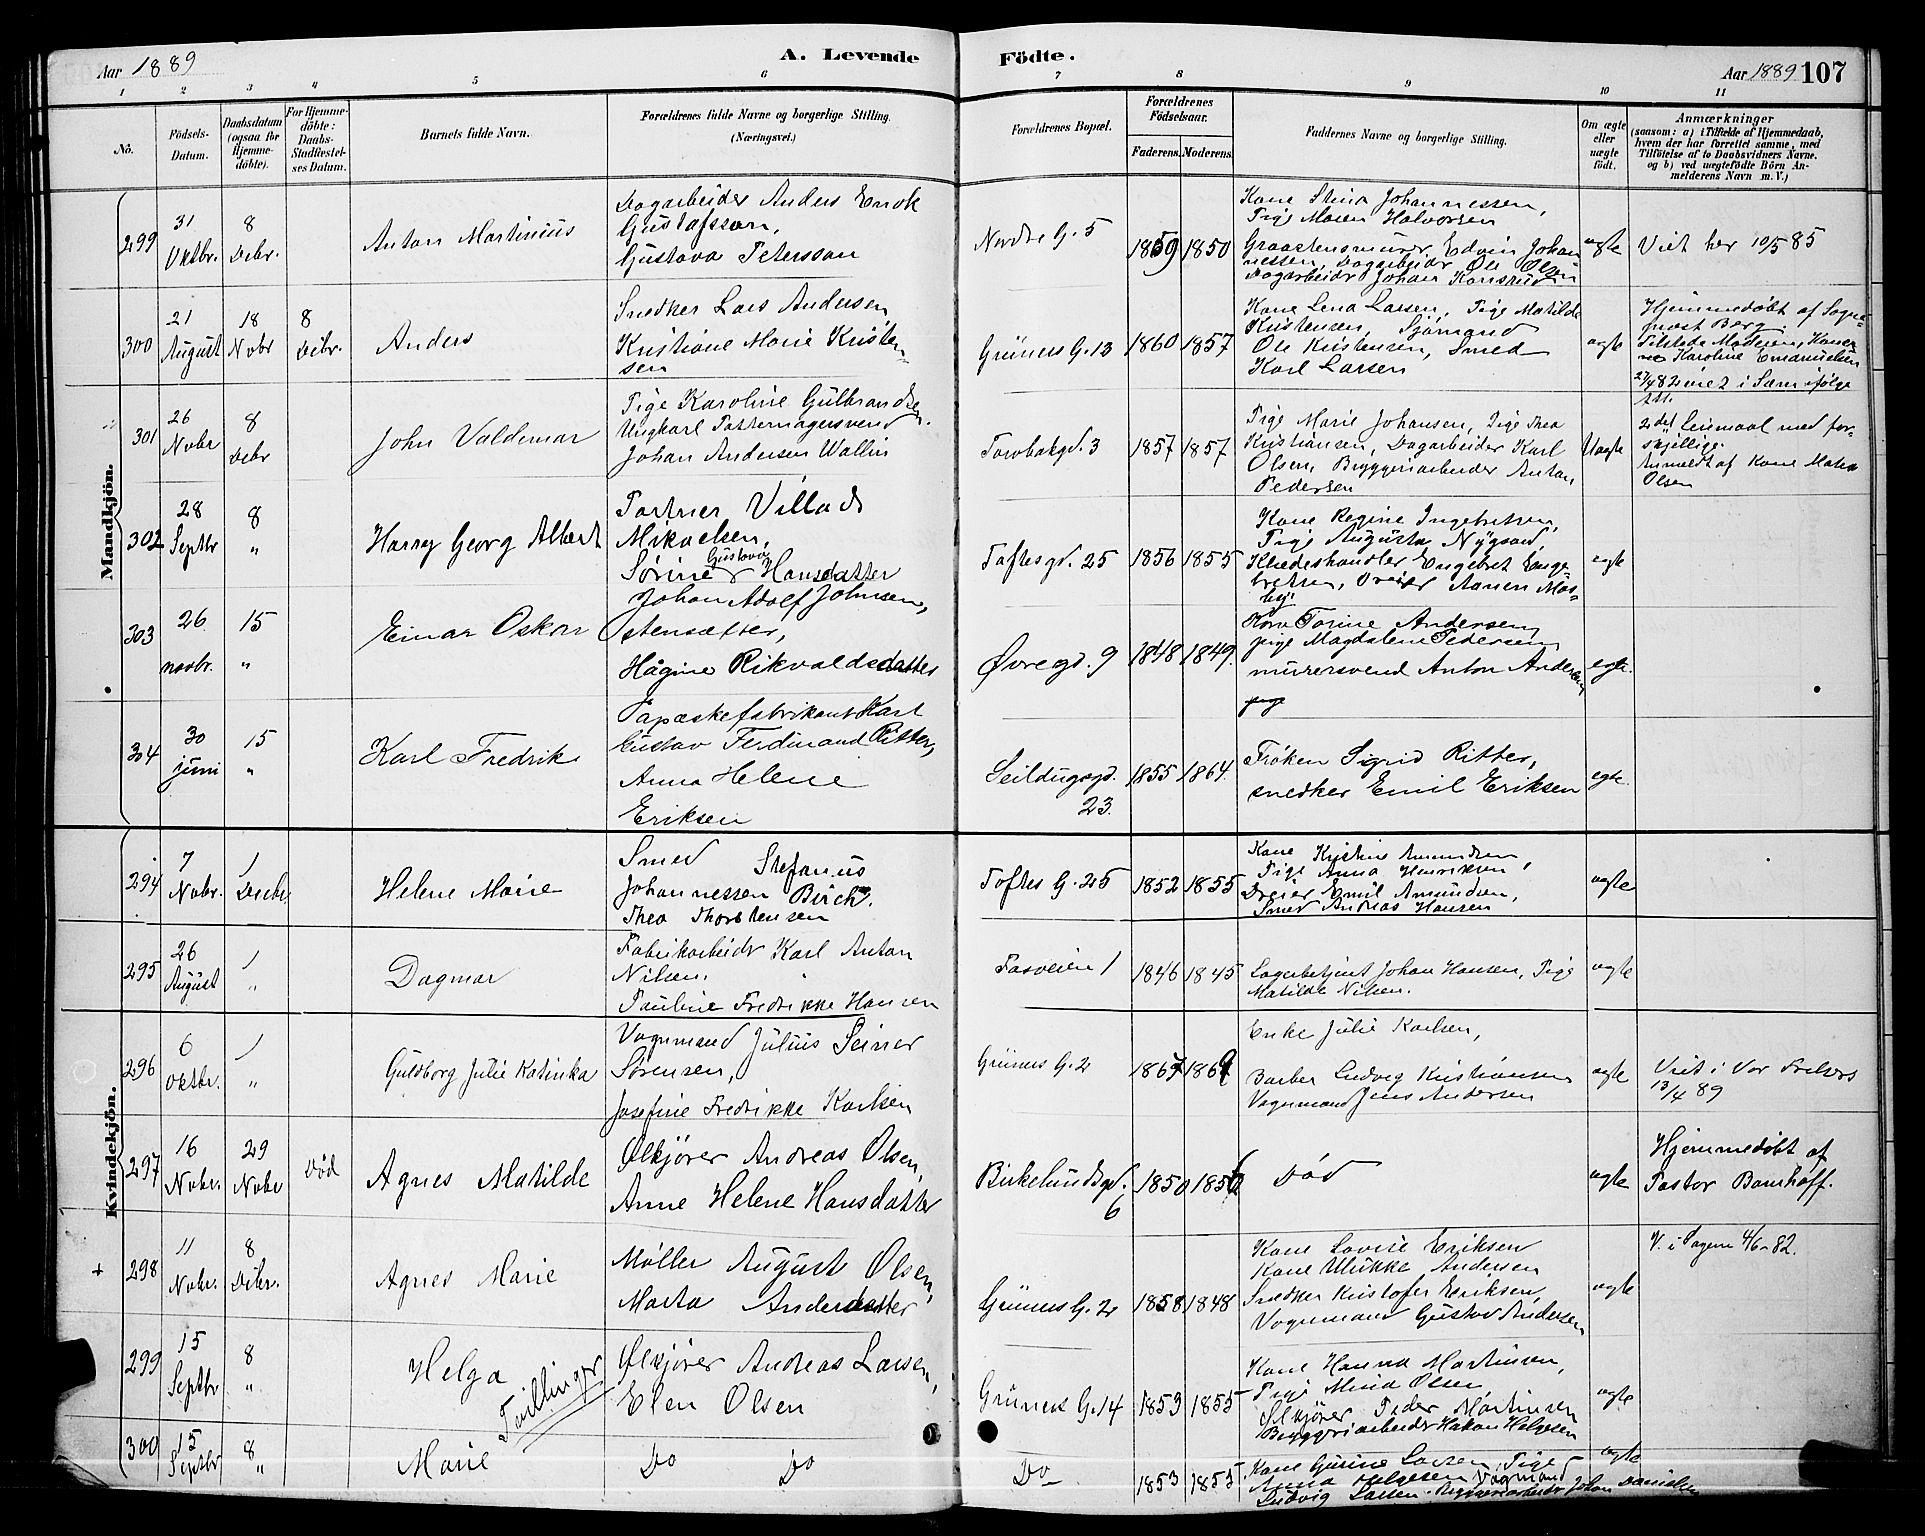 Aar 1889
A. Levende Födte.
Aar 1889 107
1 2 3 4 5 6 7 8 9 10 11
No.
Födsels-Datum.
Daabsdatum (ogsaa for Hjemmedöbte).
For Hjemmedöbte: Daabs-Stadfæstelses Datum.
Barnets fulde Navn.
Forældrenes fulde Navne og borgerlige Stilling. (Næringsvei.)
Forældrenes Bopæl.
Forældrenes Födselsaar.
Faderens. Moderens.
Faddernes Navne og borgerlige Stilling.
Om ægte eller uægte født.
Anmærkninger
(saasom: a) i Tilfælde af Hjemmedaab, hvem der har forrettet samme, med Tilföielse af to Daabsvidners Navne. og b) ved uægtefödte Börn Anmelderens Navn m. V.)
Mandkjön.
299
31 Oktbr.
8 Debr.
Anton Martinius
Dagarbeider Anders Enok
Gustafsson,
Gustava Petersson
Nordre G. 5
1859 1850
Kone Stina Johannessen,
Pige Maren Halvorsen
Graastensmurer Edvin Johannessen, Dagarbeidr Ole Olsen
Dagarbeidr Johan Karlsrud
ægte
Viet her 10/5 85
300
21 August
18 Nobr
8 Debr.
Anders
Snedker Lars Andersen
Kristiane Marie Kristensen
Grüners G. 13
1860 1857
Kone Lena Larsen, Pige Matilde
Kristensen, Sjömand
Ole Kristensen, Smed
Karl Larsen
ægte
Hjemmedøbt af Sogneprest Berg.
Tilstede Moderen, Kone
Karoline Emanuelsen
27/4 82 viet i Sam ifølge
Att.
301
26 Nobr
8 Debr
John Valdemar
Pige Karoline Gulbrandsen.
Ungkarl Pottemagersvend
Johan Andersen Wallin
Torvbakgd. 3
1857 1857
Pige Marie Johansen, Pige Thea
Kristiansen, Dagarbeider Karl
Olsen, Bryggeriarbeider Anton
Pedersen
Uægte
2det Leiermaal med forskjellige.
Anmeldt af Kone Maten
Olsen
302
28 Septbr
8 "
Harry Georg Albert
Portner Villads
Mikaelsen,
Sørine Gustava Hansdatter
Toftesgd. 25
1856 1855
Kone Regine Ingebretsen,
Pige Augusta Nygaard,
Klædeshandler Engebret Engebretsen, Dreier Aanen Mosby.
ægte
303
26. novbr.
15 "
Einar Oskar
Johan Adolf Johnsen,
stensætter,
Hågine Rikvaldsdatter
Øvregd. 9
1848 1849.
Kone Torine Andersen,
pige Magdalene Pedersen,
murersvend Anton Andersen
pige
egte.
304
30 juni
15 "
Karl Fredrik
Papæskefabrikant Karl
Gustav Ferdinand Ritter,
Anna Helene
Eriksen
Seildugsgd.
23.
1855 1864.
Frøken Sigrid Ritter,
snedker Emil Eriksen
egte.
Kvindekjön.
294
7 Nobr.
1 Decbr
Helene Marie
Smed Stefanus
Johannessen Birch.
Thea Thorstensen
Toftes G. 25
1852 1855
Kone Kristine Amundsen,
Pige Anna Henriksen,
Dreier Emil Amundsen,
Smed Andreas Hansen
ægte
295
26 August
1 "
Dagmar
Fabrikarbeidr Karl Anton
Nilsen.
Pauline Fredrikke Hansen
Fasveien 1
1846 1845
Lagerbetjent Johan Hansen, Pige
Matilde Nilsen.
ægte
296
6 Oktbr.
1 "
Guldborg Julie Katinka
Vognmand Julius Seiner
Sørensen,
Josefine Fredrikke Karlsen
Grüners G. 2
1867 1869
Enke Julie Karlsen,
Barber Ludvig Kristiansen
Vognmand Jens Andersen
ægte
Viet i Vor Frelsers
13/4 89
297
16 Nobr.
29 Nobr
Død
Agnes Matilde
Ølkjører Andreas Olsen,
Anne Helene Hansdatter
Birkelundsgd.
6
1850 1856
Død
ægte
Hjemmedøbt af
Pastor Bomhoff.
+
298
11 Nobr.
8 Debr.
Agnes Marie
Møller August Olsen,
Marta Andersdatter
Grüners G. 2
1858 1848
Kone Lovise Eriksen
Kone Ulrikke Andersen
Snedker Kristofer Eriksen,
Vognmand Gustav Andersen
ægte
V. i 4/6-82.
299
15 Septbr
8 "
Helga
Tvillinger
Ølkjører Andreas Larsen,
Elen Olsen
Grüners G. 14
1853 1855
Kone Hanna Martinsen,
Pige Mina Olsen
Ølkjører Peder Martinsen
Bryggeriarbeider Hakon Helgesen
ægte
300
15 Septbr
8 "
Marie
Do Do
Do
1853 1855
Kone Gurine Larsen, Pige
Anna Helgesen, Vognmand
Ludvig Larsen. Bryggeriarbeidr Johan Danielsen
ægte